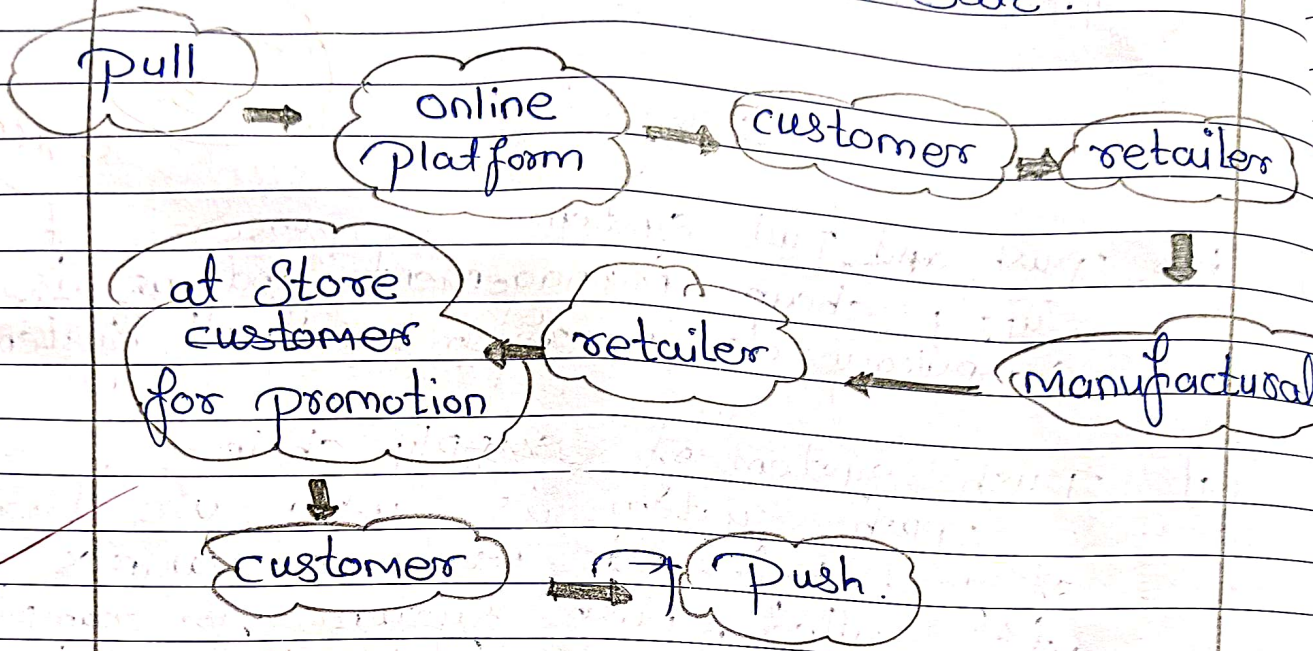 pull
online
platform
customer
retailer
manufactural
retailer
at Store
customer
for promotion
customer
Push.